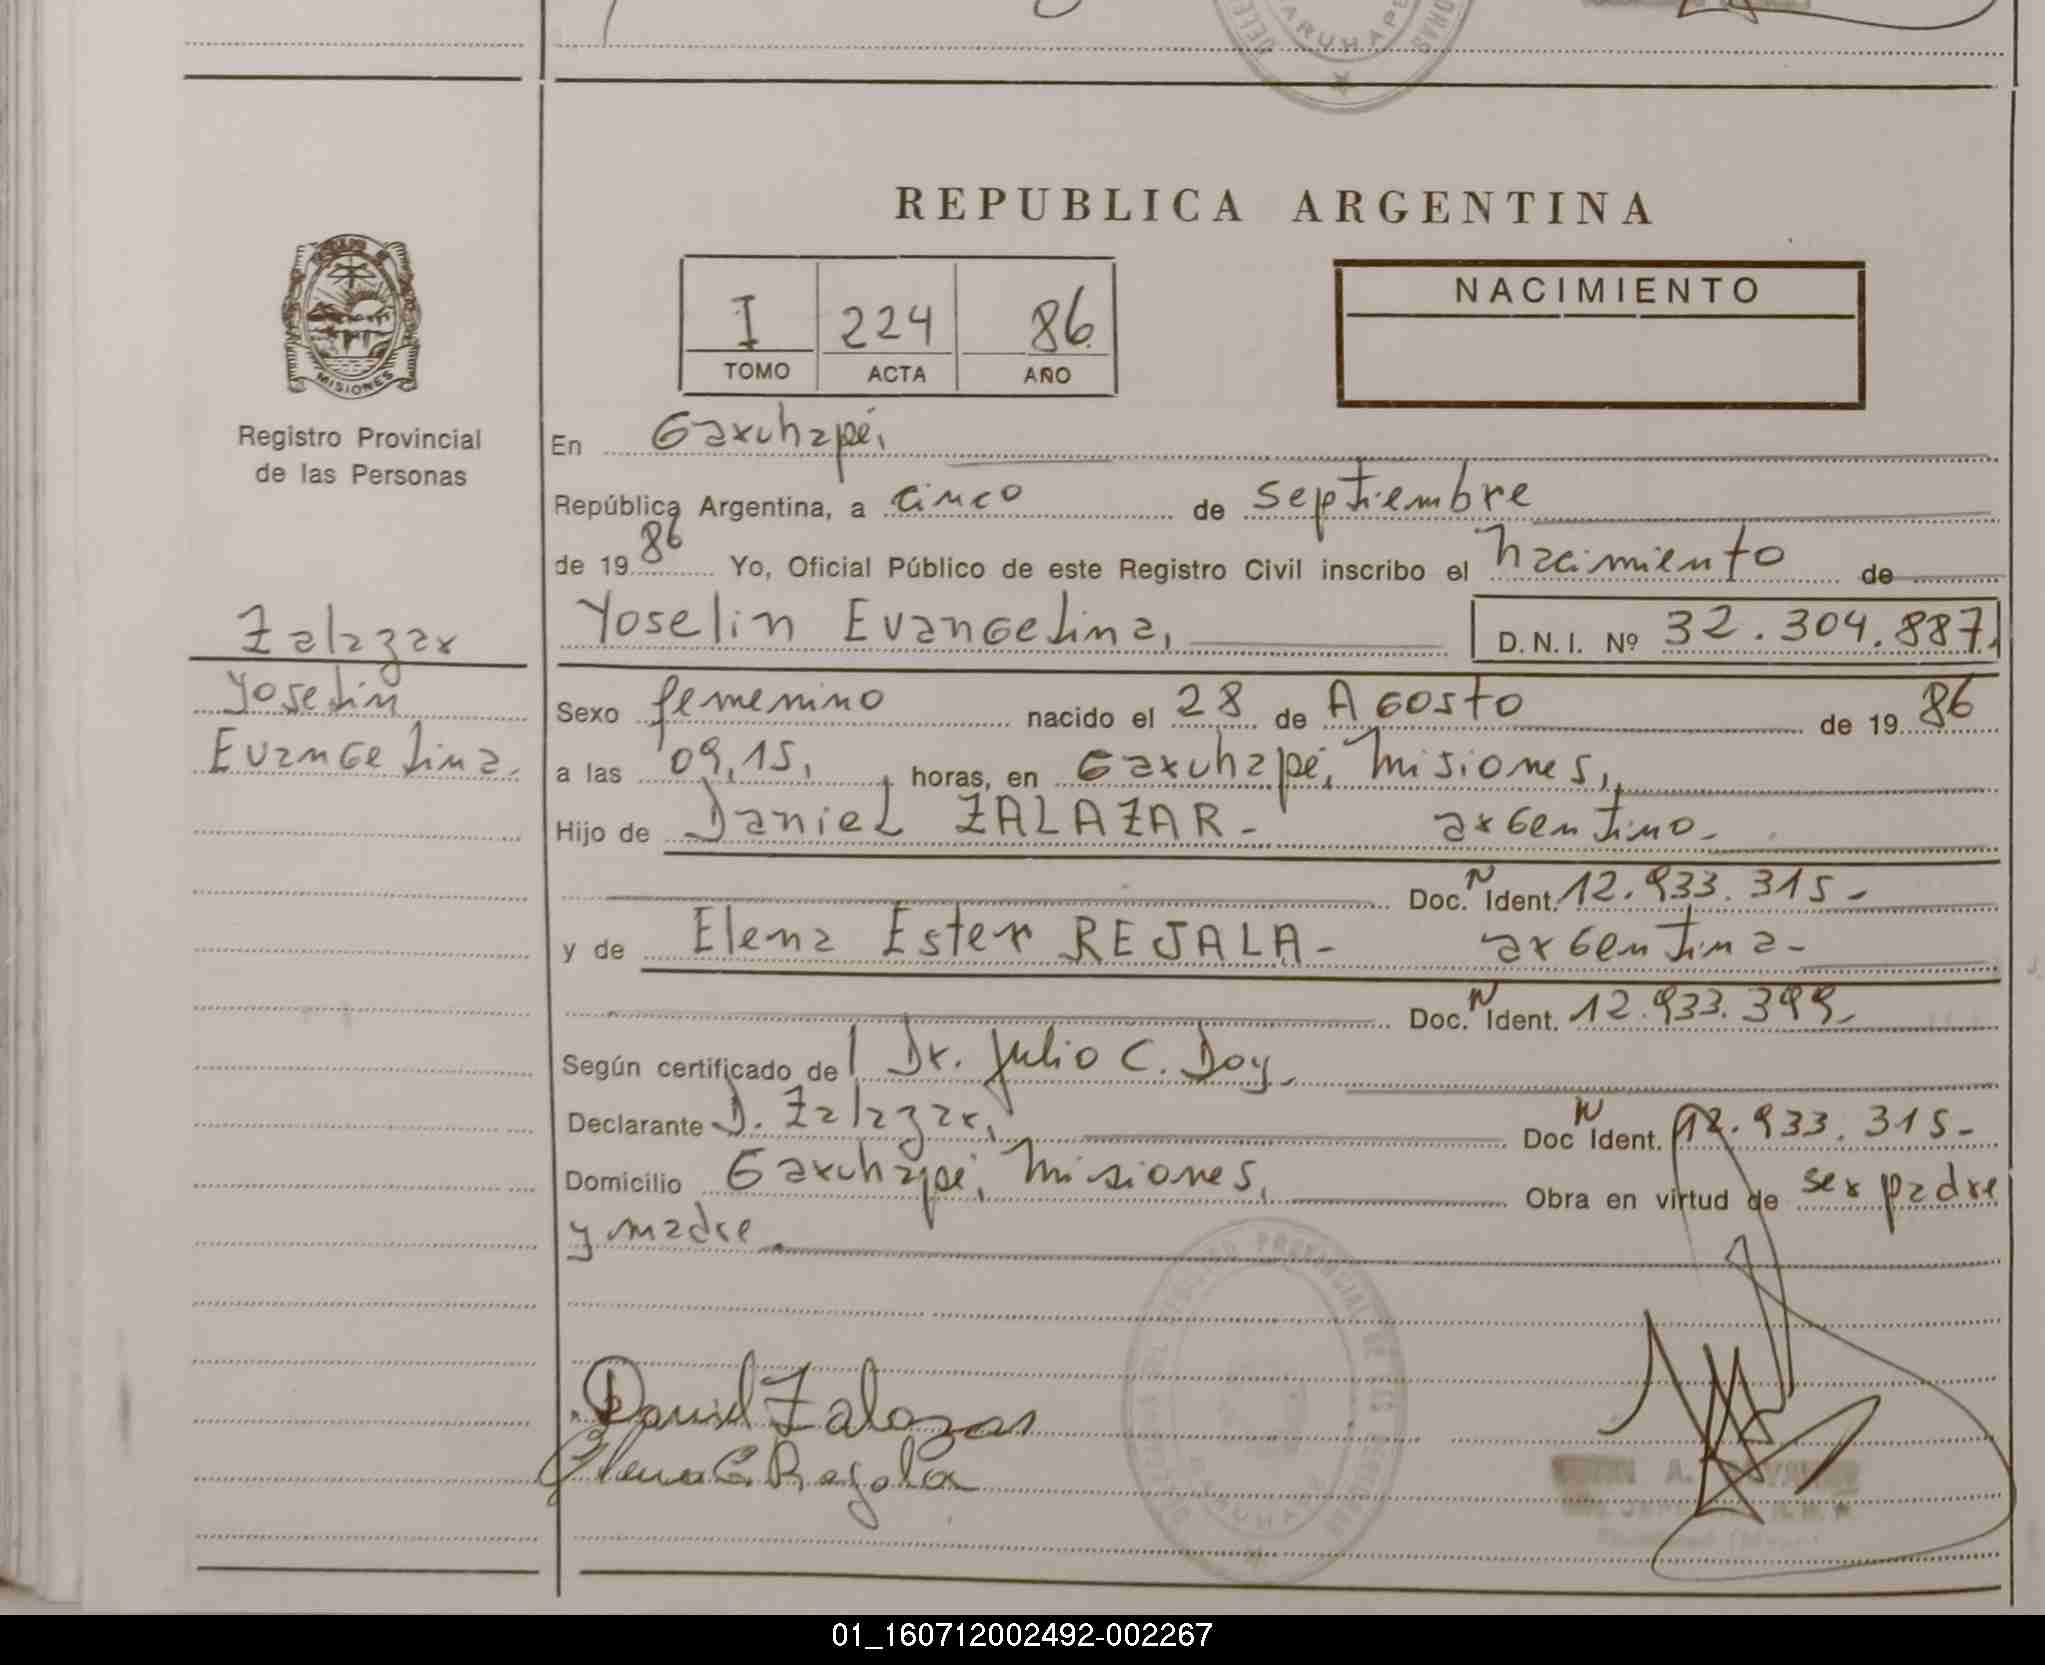 REPUBLICA ARGENTINA
I 224 86
TOMO ACTA AÑO
NACIMIENTO
MISIONES
Registro Provincial
de las Personas
Zalazar
Yoselin
Evangelina.
En Garuhapé,
República Argentina, a cinco de septiembre
de 19 86 Yo, Oficial Público de este Registro Civil inscribo el nacimiento de
Yoselin Evangelina, D. N. I. Nº 32.304.887.
Sexo femenino nacido el 28 de Agosto de 19 86
a las 09,15, horas, en Garuhapé, Misiones,
Hijo de Daniel ZALAZAR - argentino -
Doc. N Ident. 12.933.315 -
y de Elena Ester REJALA - argentina -
Doc. N Ident. 12.933.399 -
Según certificado de l Dr. Julio C. Doy -
Declarante D. Zalazar, Doc N Ident. 12.933.315 -
Domicilio Garuhapé, Misiones, Obra en virtud de ser padre
y madre
Daniel Zalazar
Elena E. Rejala
01_160712002492-002267